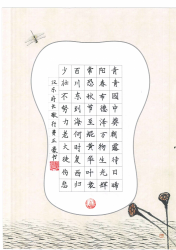 青青園中葵朝露待日晞
阳春布德泽万物生光辉
常恐秋节至焜黄华叶衰
百川东到海何时复西归
少壮不努力老大徒伤悲
汉乐府长歌行